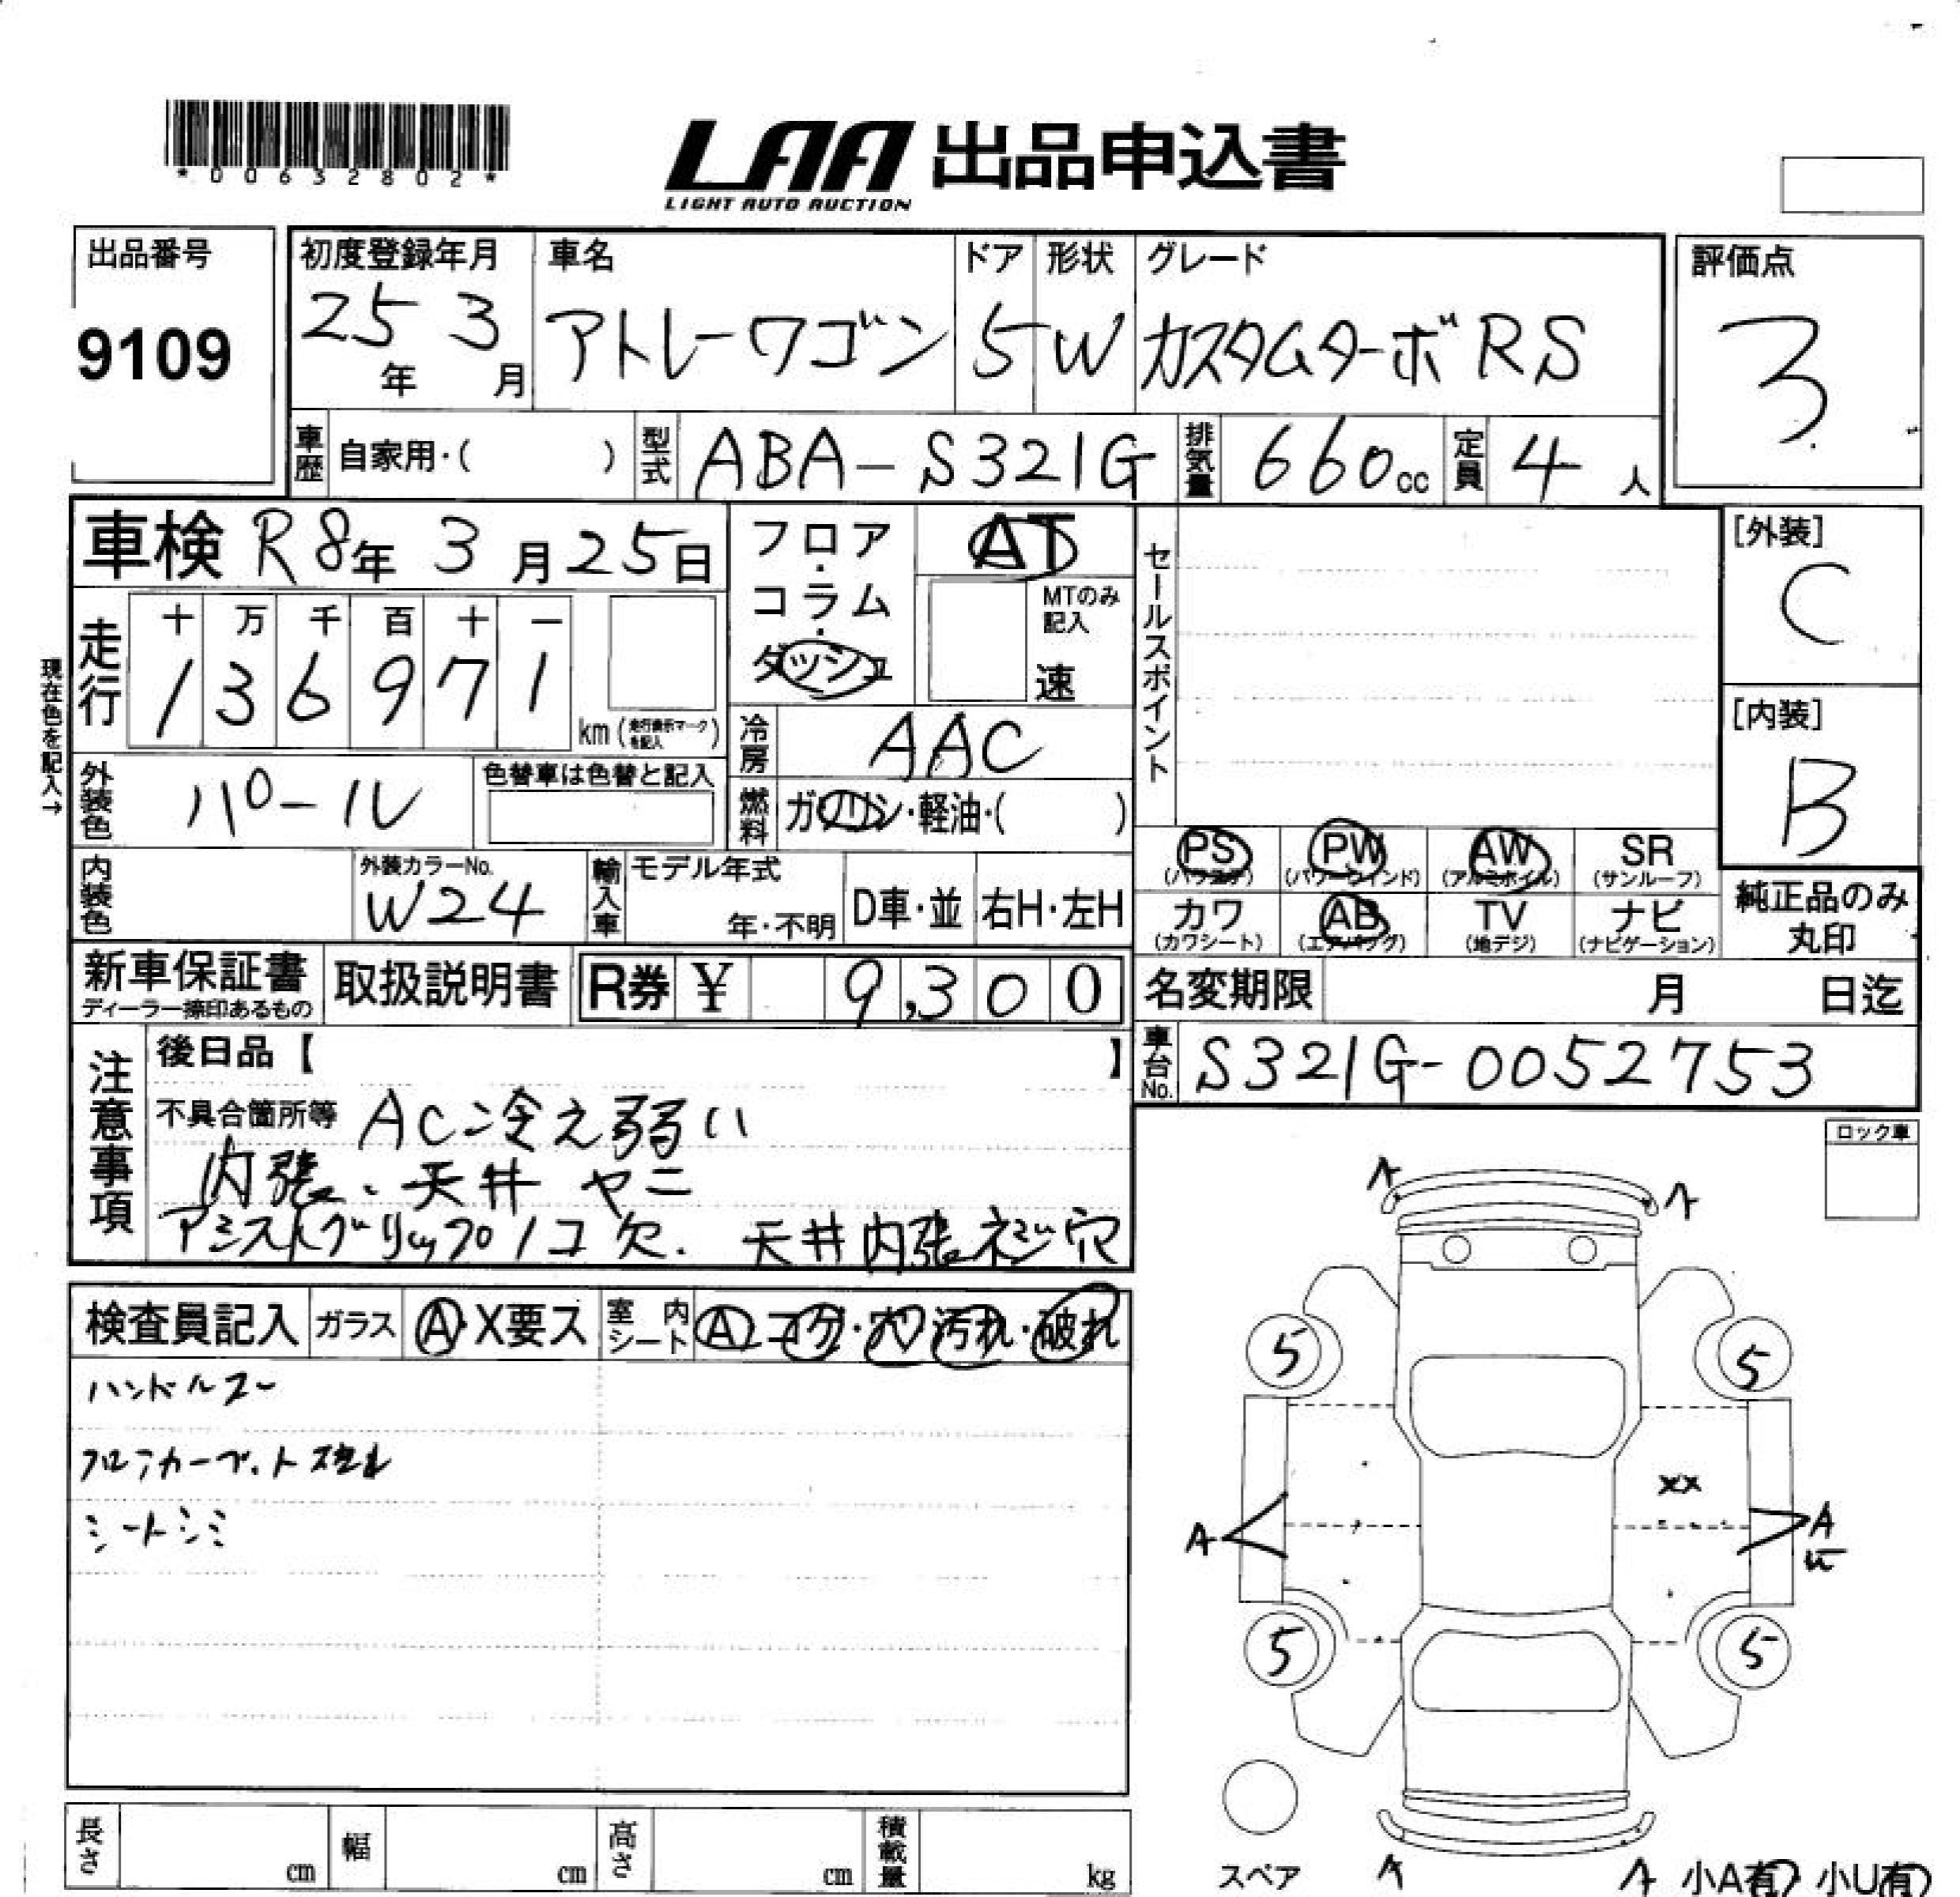 *00632802*
LAA 出品申込書
LIGHT AUTO AUCTION
出品番号
9109
初度登録年月
25年 3月
車名
アトレーワゴン
ドア
5
形状
W
グレード
カスタムターボRS
評価点
3
車歴 自家用・( )
型式 ABA-S321G
排気量 660cc
定員 4人
車検 R8年 3月25日
現在色を記入→
走行
十 万 千 百 十 一
1 3 6 9 7 1
km (走行表示マークを記入)
フロア・コラム・ダッシュ
AT
MTのみ記入
速
冷房 AAC
燃料 ガソリン・軽油・( )
外装色 パール
色替車は色替と記入
内装色
外装カラーNo.
W24
輸入車
モデル年式
年・不明
D車・並
右H・左H
セールスポイント
[外装]
C
[内装]
B
PS (パワステ)
PW (パワーウインド)
AW (アルミホイル)
SR (サンルーフ)
カワ (カワシート)
AB (エアバッグ)
TV (地デジ)
ナビ (ナビゲーション)
純正品のみ丸印
新車保証書
ディーラー捺印あるもの
取扱説明書
R券 ¥ 9,300
名変期限 月 日迄
車台No. S321G-0052753
注意事項
後日品【 】
不具合箇所等 AC冷え弱い
内張、天井 ヤニ
アシストグリップ1コ欠. 天井内張ネジ穴
ロック車
検査員記入
ガラス A・X要ス
室内シート A コゲ・穴・汚れ・破れ
ハンドルスレ
フロアカーペットスレ
シートシミ
A
A
5
5
XX
A
A
5
5
スペア
A
A
小A有 小U有
長さ cm
幅 cm
高さ cm
積載量 kg